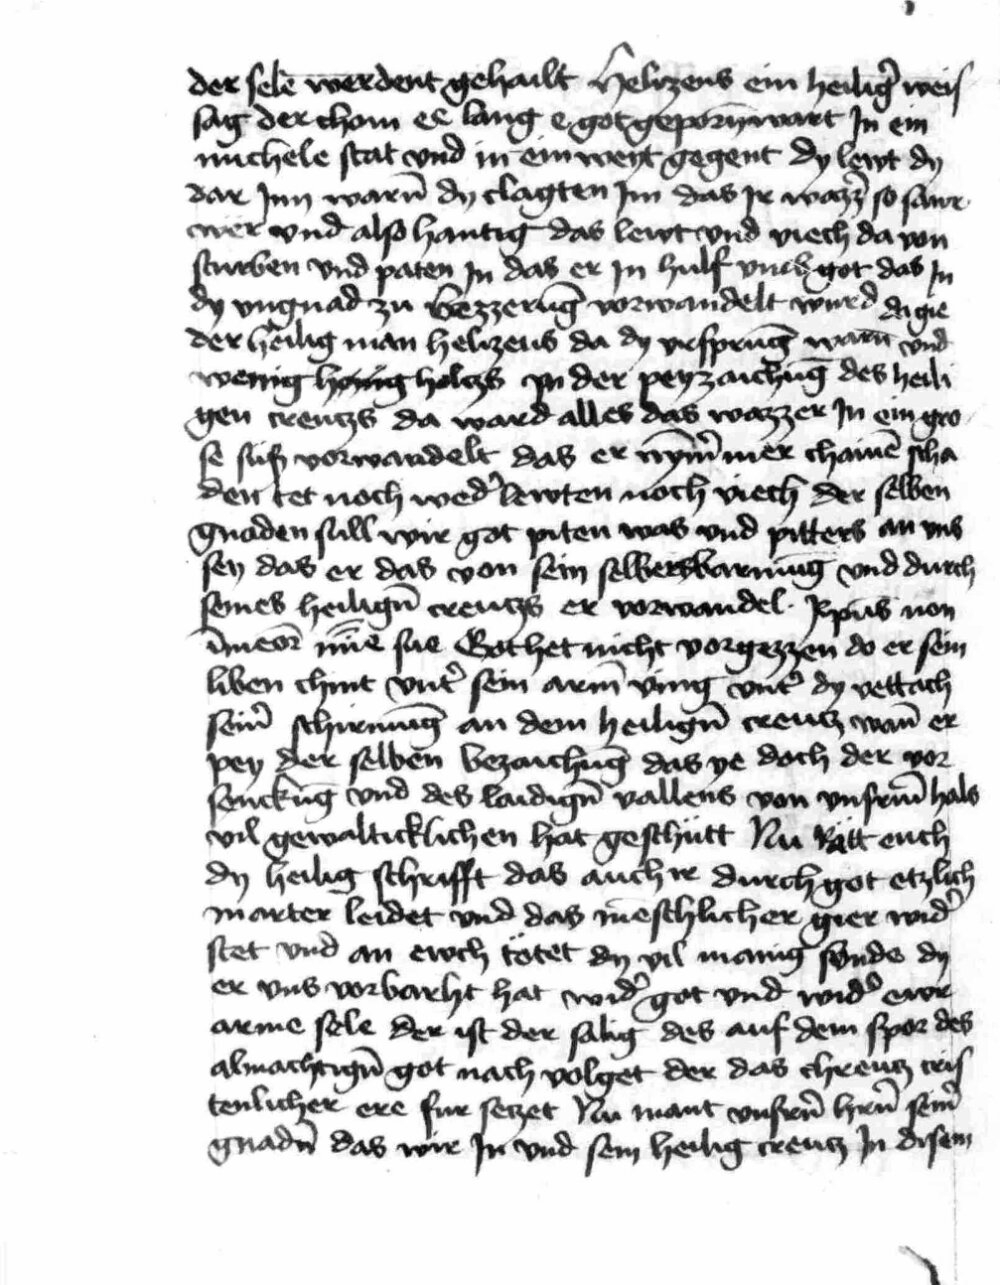 der sele werdent gehailt Helizeus ein heilig̉ weis
sag der chom ee lang e got geporn̄ wart In ein
michele stat vnd in ein weyt gegent dy lewt dy
dar Inn warn̄ dy clagten Im das Ir wazz̉ so sawr
wer vnd also hantig das lewt vnd viech da von
sturben vnd paten In das er In hulf vmb got das In
dy vngnad zu bezzerūg vorwandelt wurd do gie
der heilig man helizeus da dy vrsprūg warn̄ vnd
wenig holtzs In der peyzaichūg des heili
gen creutzs da ward alles das wazzer In ein gro
se süß vorwandelt das er nym̉ mer chainē scha
den tet noch wed̉ lewten noch viech der selben
gnaden sull wir got piten was vnd pitters an vns
sey das er das von sein selbers barmūg vnd durch
seines heilign̄ creutzs er vorwandel. Xpūs non
Got het nicht vorgezzen do er sein
liben chint vnt̉ sein arm̄ ving vnt̉ dy vettach
sein̉ schirmūg an dem heilign̄ creutz wan̄ er
pey der selben bezaichūg das ye doch der vor
senckūg vnd des laidign̄ vallens von vnsrm̄ hals
vil gewalticklichen hat geschütt Nu Rätt euch
dy heilig schrifft das auch ir durch got etzlich
marter leidet vnd das mēschlicher gier wid̉
stet vnd an ewch tötet dy vil manig sünde dy
er vns vorbarht hat wid̉ got vnd wid̉ ewr
arme sele der ist der salig des auf dem spor des
almachtign̄ got nach volget der das chreutz cris
tenlicher ere fur setzet Nu mant vnsrn̄ hrn̄ sein̉
gnadn̄ das wir In vnd sein heilig creutz In disem